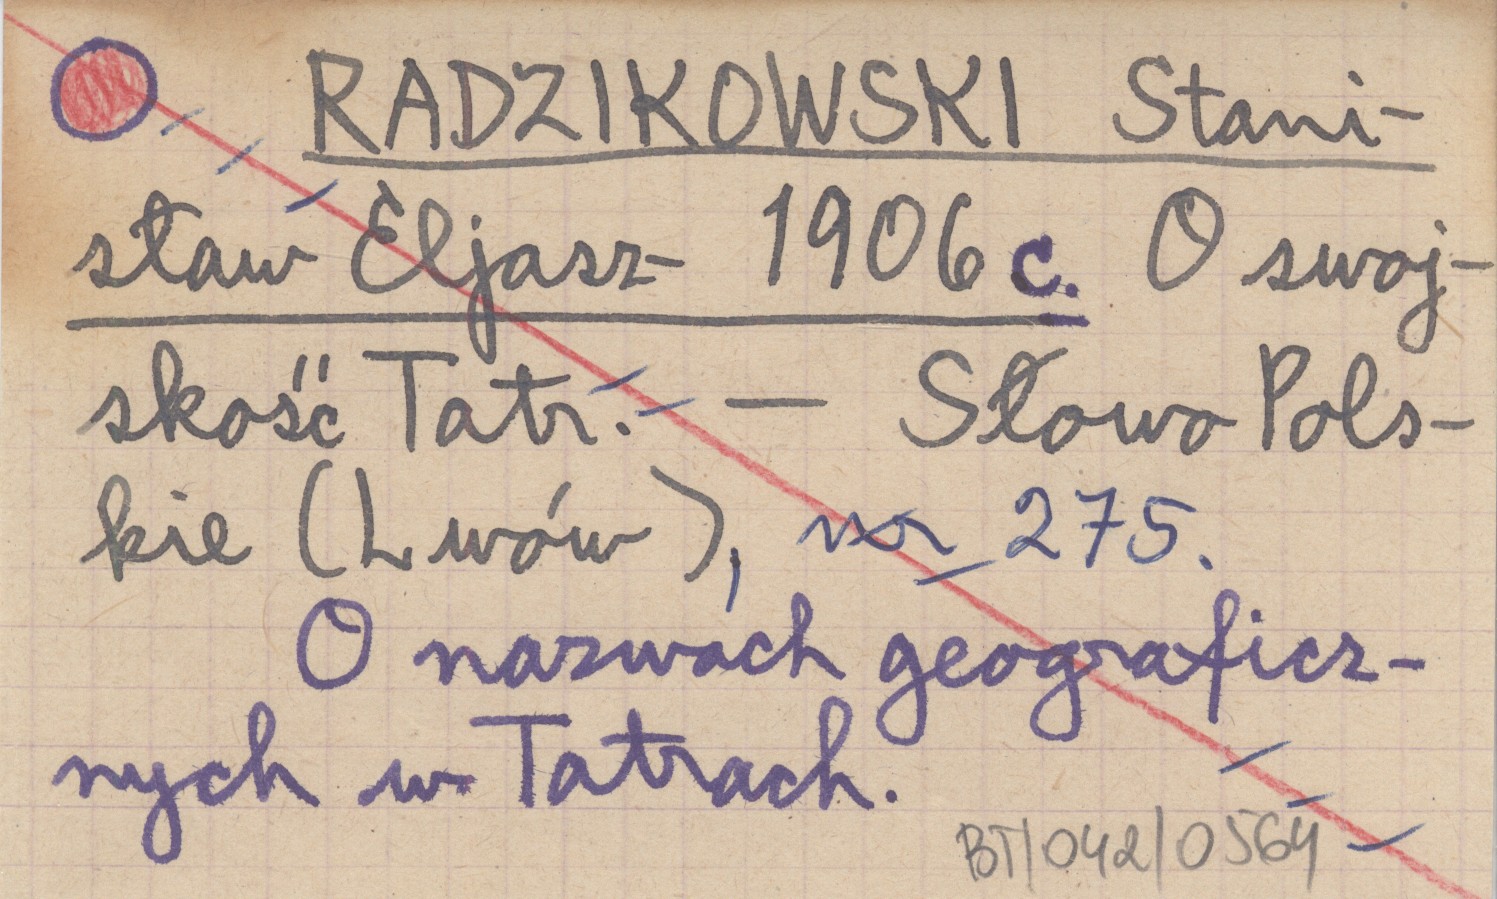 RADZIKOWSKI Stani-
sław Eljasz- 1906c. O swoj-
skość Tatr. — Słowo Pols-
kie (Lwów), nr 275.
O nazwach geograficz-
nych w Tatrach.
BT/042/0564